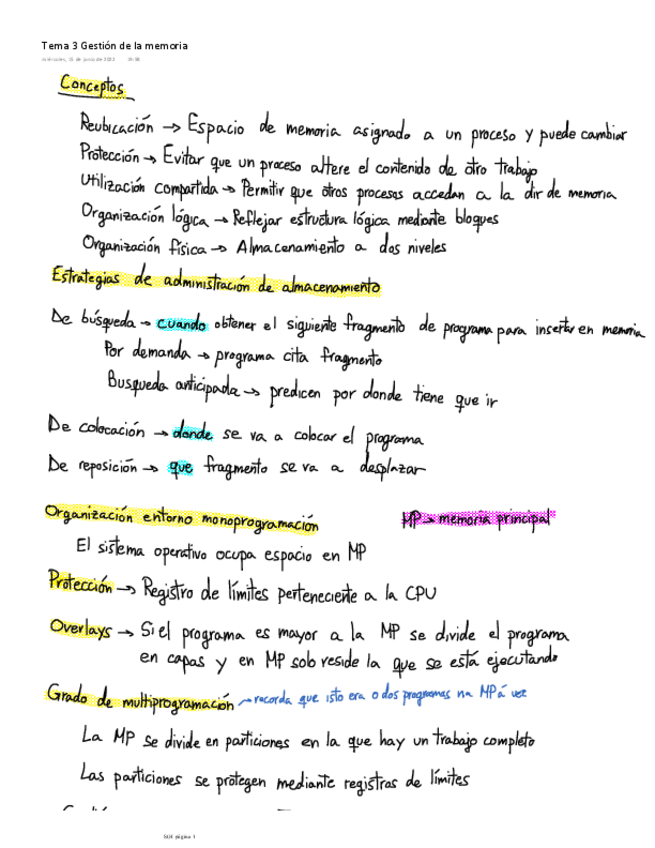 Tema 3 Gestión de la memoria
miércoles, 15 de junio de 2022
Conceptos
Reubicación → Espacio de memoria asignado a un proceso y puede cambiar
Protección → Evitar que un proceso altere el contenido de otro trabajo
Utilización compartida → Permitir que otros procesos accedan a la dir de memoria
Organización lógica → Reflejar estructura lógica mediante bloques
Organización física → Almacenamiento a dos niveles
Estrategias de administración de almacenamiento
De búsqueda → cuando obtener el siguiente fragmento de programa para insertar en memoria
Por demanda → programa cita fragmento
Busqueda anticipada → predicen por donde tiene que ir
De colocación → donde se va a colocar el programa
De reposición → que fragmento se va a desplazar
Organización entorno monoprogramación
MP → memoria principal
El sistema operativo ocupa espacio en MP
Protección → Registro de límites perteneciente a la CPU
Overlays → Si el programa es mayor a la MP se divide el programa
en capas y en MP solo reside la que se está ejecutando
Grado de multiprogramación → recorda que isto era o dos programas na MP á vez
La MP se divide en particiones en la que hay un trabajo completo
Las particiones se protegen mediante registros de límites
página 1